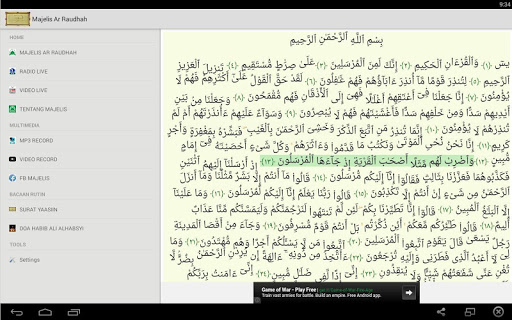 9:34
Majelis Ar Raudhah
HOME
MAJELIS AR RAUDHAH
RADIO LIVE
VIDEO LIVE
TENTANG MAJELIS
MULTIMEDIA
MP3 RECORD
VIDEO RECORD
FB MAJELIS
BACAAN RUTIN
SURAT YAASIIN
DOA HABIB ALI ALHABSYI
TOOLS
Settings
بِسْمِ ٱللَّهِ ٱلرَّحْمَٰنِ ٱلرَّحِيمِ
يسٓ ﴿١﴾ وَٱلْقُرْءَانِ ٱلْحَكِيمِ ﴿٢﴾ إِنَّكَ لَمِنَ ٱلْمُرْسَلِينَ ﴿٣﴾ عَلَىٰ صِرَٰطٍ مُّسْتَقِيمٍ ﴿٤﴾ تَنزِيلَ ٱلْعَزِيزِ
ٱلرَّحِيمِ ﴿٥﴾ لِتُنذِرَ قَوْمًا مَّآ أُنذِرَ ءَابَآؤُهُمْ فَهُمْ غَٰفِلُونَ ﴿٦﴾ لَقَدْ حَقَّ ٱلْقَوْلُ عَلَىٰٓ أَكْثَرِهِمْ فَهُمْ لَا
يُؤْمِنُونَ ﴿٧﴾ إِنَّا جَعَلْنَا فِىٓ أَعْنَٰقِهِمْ أَغْلَٰلًا فَهِىَ إِلَى ٱلْأَذْقَانِ فَهُم مُّقْمَحُونَ ﴿٨﴾ وَجَعَلْنَا مِنۢ بَيْنِ
أَيْدِيهِمْ سَدًّا وَمِنْ خَلْفِهِمْ سَدًّا فَأَغْشَيْنَٰهُمْ فَهُمْ لَا يُبْصِرُونَ ﴿٩﴾ وَسَوَآءٌ عَلَيْهِمْ ءَأَنذَرْتَهُمْ أَمْ لَمْ
تُنذِرْهُمْ لَا يُؤْمِنُونَ ﴿١٠﴾ إِنَّمَا تُنذِرُ مَنِ ٱتَّبَعَ ٱلذِّكْرَ وَخَشِىَ ٱلرَّحْمَٰنَ بِٱلْغَيْبِ فَبَشِّرْهُ بِمَغْفِرَةٍ وَأَجْرٍ
كَرِيمٍ ﴿١١﴾ إِنَّا نَحْنُ نُحْىِ ٱلْمَوْتَىٰ وَنَكْتُبُ مَا قَدَّمُوا۟ وَءَاثَٰرَهُمْ وَكُلَّ شَىْءٍ أَحْصَيْنَٰهُ فِىٓ إِمَامٍ
مُّبِينٍ ﴿١٢﴾ وَٱضْرِبْ لَهُم مَّثَلًا أَصْحَٰبَ ٱلْقَرْيَةِ إِذْ جَآءَهَا ٱلْمُرْسَلُونَ ﴿١٣﴾ إِذْ أَرْسَلْنَآ إِلَيْهِمُ ٱثْنَيْنِ
فَكَذَّبُوهُمَا فَعَزَّزْنَا بِثَالِثٍ فَقَالُوٓا۟ إِنَّآ إِلَيْكُم مُّرْسَلُونَ ﴿١٤﴾ قَالُوا۟ مَآ أَنتُمْ إِلَّا بَشَرٌ مِّثْلُنَا وَمَآ أَنزَلَ
ٱلرَّحْمَٰنُ مِن شَىْءٍ إِنْ أَنتُمْ إِلَّا تَكْذِبُونَ ﴿١٥﴾ قَالُوا۟ رَبُّنَا يَعْلَمُ إِنَّآ إِلَيْكُمْ لَمُرْسَلُونَ ﴿١٦﴾ وَمَا عَلَيْنَآ
إِلَّا ٱلْبَلَٰغُ ٱلْمُبِينُ ﴿١٧﴾ قَالُوٓا۟ إِنَّا تَطَيَّرْنَا بِكُمْ لَئِن لَّمْ تَنتَهُوا۟ لَنَرْجُمَنَّكُمْ وَلَيَمَسَّنَّكُم مِّنَّا عَذَابٌ
أَلِيمٌ ﴿١٨﴾ قَالُوا۟ طَٰٓئِرُكُم مَّعَكُمْ أَئِن ذُكِّرْتُم بَلْ أَنتُمْ قَوْمٌ مُّسْرِفُونَ ﴿١٩﴾ وَجَآءَ مِنْ أَقْصَا ٱلْمَدِينَةِ
رَجُلٌ يَسْعَىٰ قَالَ يَٰقَوْمِ ٱتَّبِعُوا۟ ٱلْمُرْسَلِينَ ﴿٢٠﴾ ٱتَّبِعُوا۟ مَن لَّا يَسْـَٔلُكُمْ أَجْرًا وَهُم مُّهْتَدُونَ ﴿٢١﴾ وَمَا
لِىَ لَآ أَعْبُدُ ٱلَّذِى فَطَرَنِى وَإِلَيْهِ تُرْجَعُونَ ﴿٢٢﴾ ءَأَتَّخِذُ مِن دُونِهِۦٓ ءَالِهَةً إِن يُرِدْنِ ٱلرَّحْمَٰنُ بِضُرٍّ لَّا
تُغْنِ عَنِّى شَفَٰعَتُهُمْ شَيْـًٔا وَلَا يُنقِذُونِ ﴿٢٣﴾ إِنِّىٓ إِذًا لَّفِى ضَلَٰلٍ مُّبِينٍ ﴿٢٤﴾ إِنِّىٓ ءَامَنتُ بِرَبِّكُمْ
Game of War - Play Free
Train vast armies for battle. Build an empire. Free Android app.